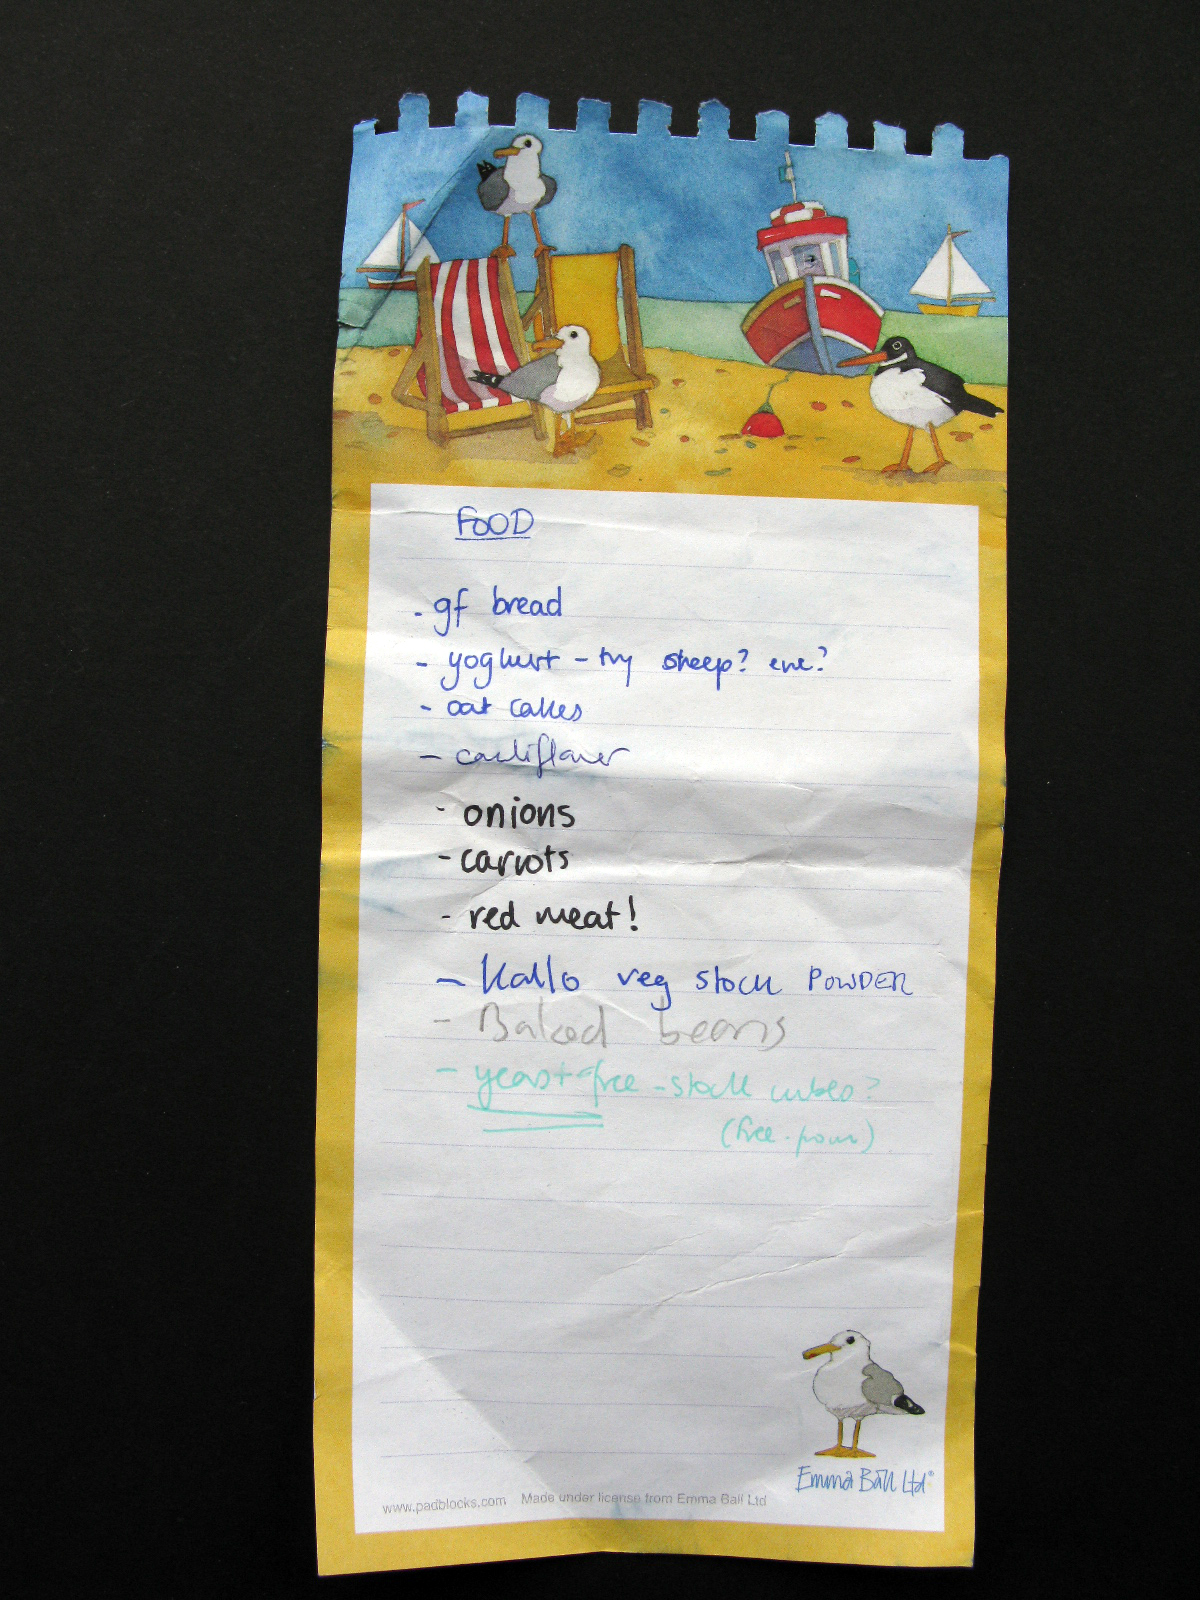 FOOD
- gf bread
- yoghurt - try sheep? ewe?
- oat cakes
- cauliflower
- onions
- carrots
- red meat!
- Kallo veg stock POWDER
- Baked beans
- yeast-free - stock cubes?
(free-from)
Emma Ball Ltd
www.padblocks.com Made under license from Emma Ball Ltd